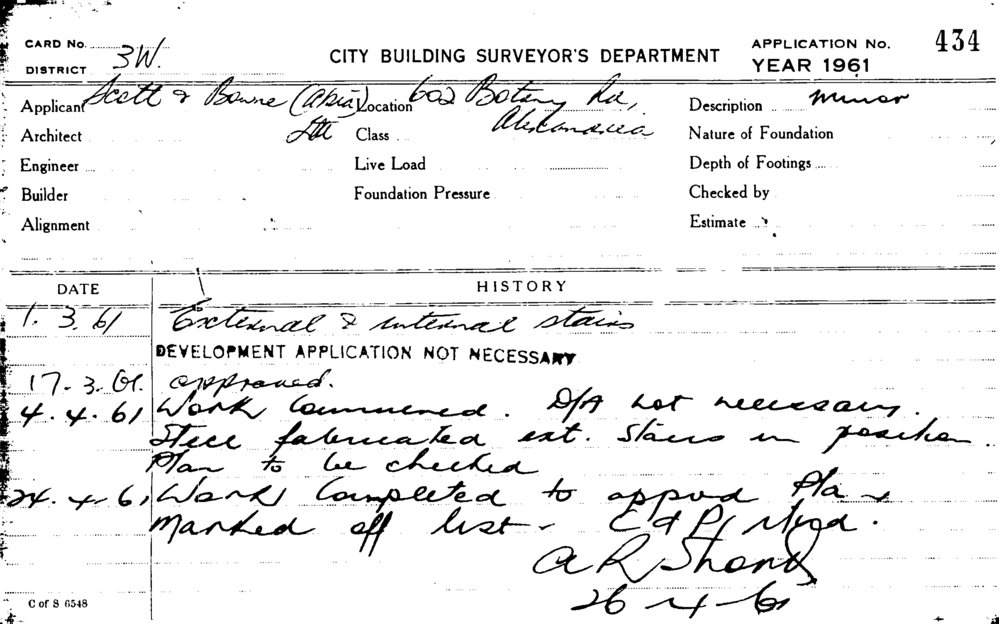 CARD No. 3W. CITY BUILDING SURVEYOR'S DEPARTMENT APPLICATION No. 434
DISTRICT YEAR 1961
Applicant Scott & Bowne (Asia) Location 602 Botany Rd, Description minor
Architect Ltd Class Alexandria Nature of Foundation
Engineer Live Load Depth of Footings
Builder Foundation Pressure Checked by
Alignment Estimate
DATE HISTORY
1. 3. 61 External & internal stairs
DEVELOPMENT APPLICATION NOT NECESSARY
17. 3. 61. approved.
4. 4. 61 Work Commenced. D/A not necessary.
Steel fabricated ext. stairs in position.
Plan to be checked
24. 4. 61 Work Completed to appvd Plan
Marked off list - E & P
A R Shand
26-4-61
C of S 6548